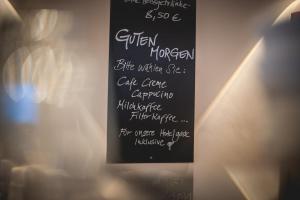 8,50 €
GUTEN
MORGEN
Bitte wählen Sie:
Cafe Creme
Cappucino
Milchkaffee
Filterkaffee ...
Für unsere Hotelgäste
inklusive